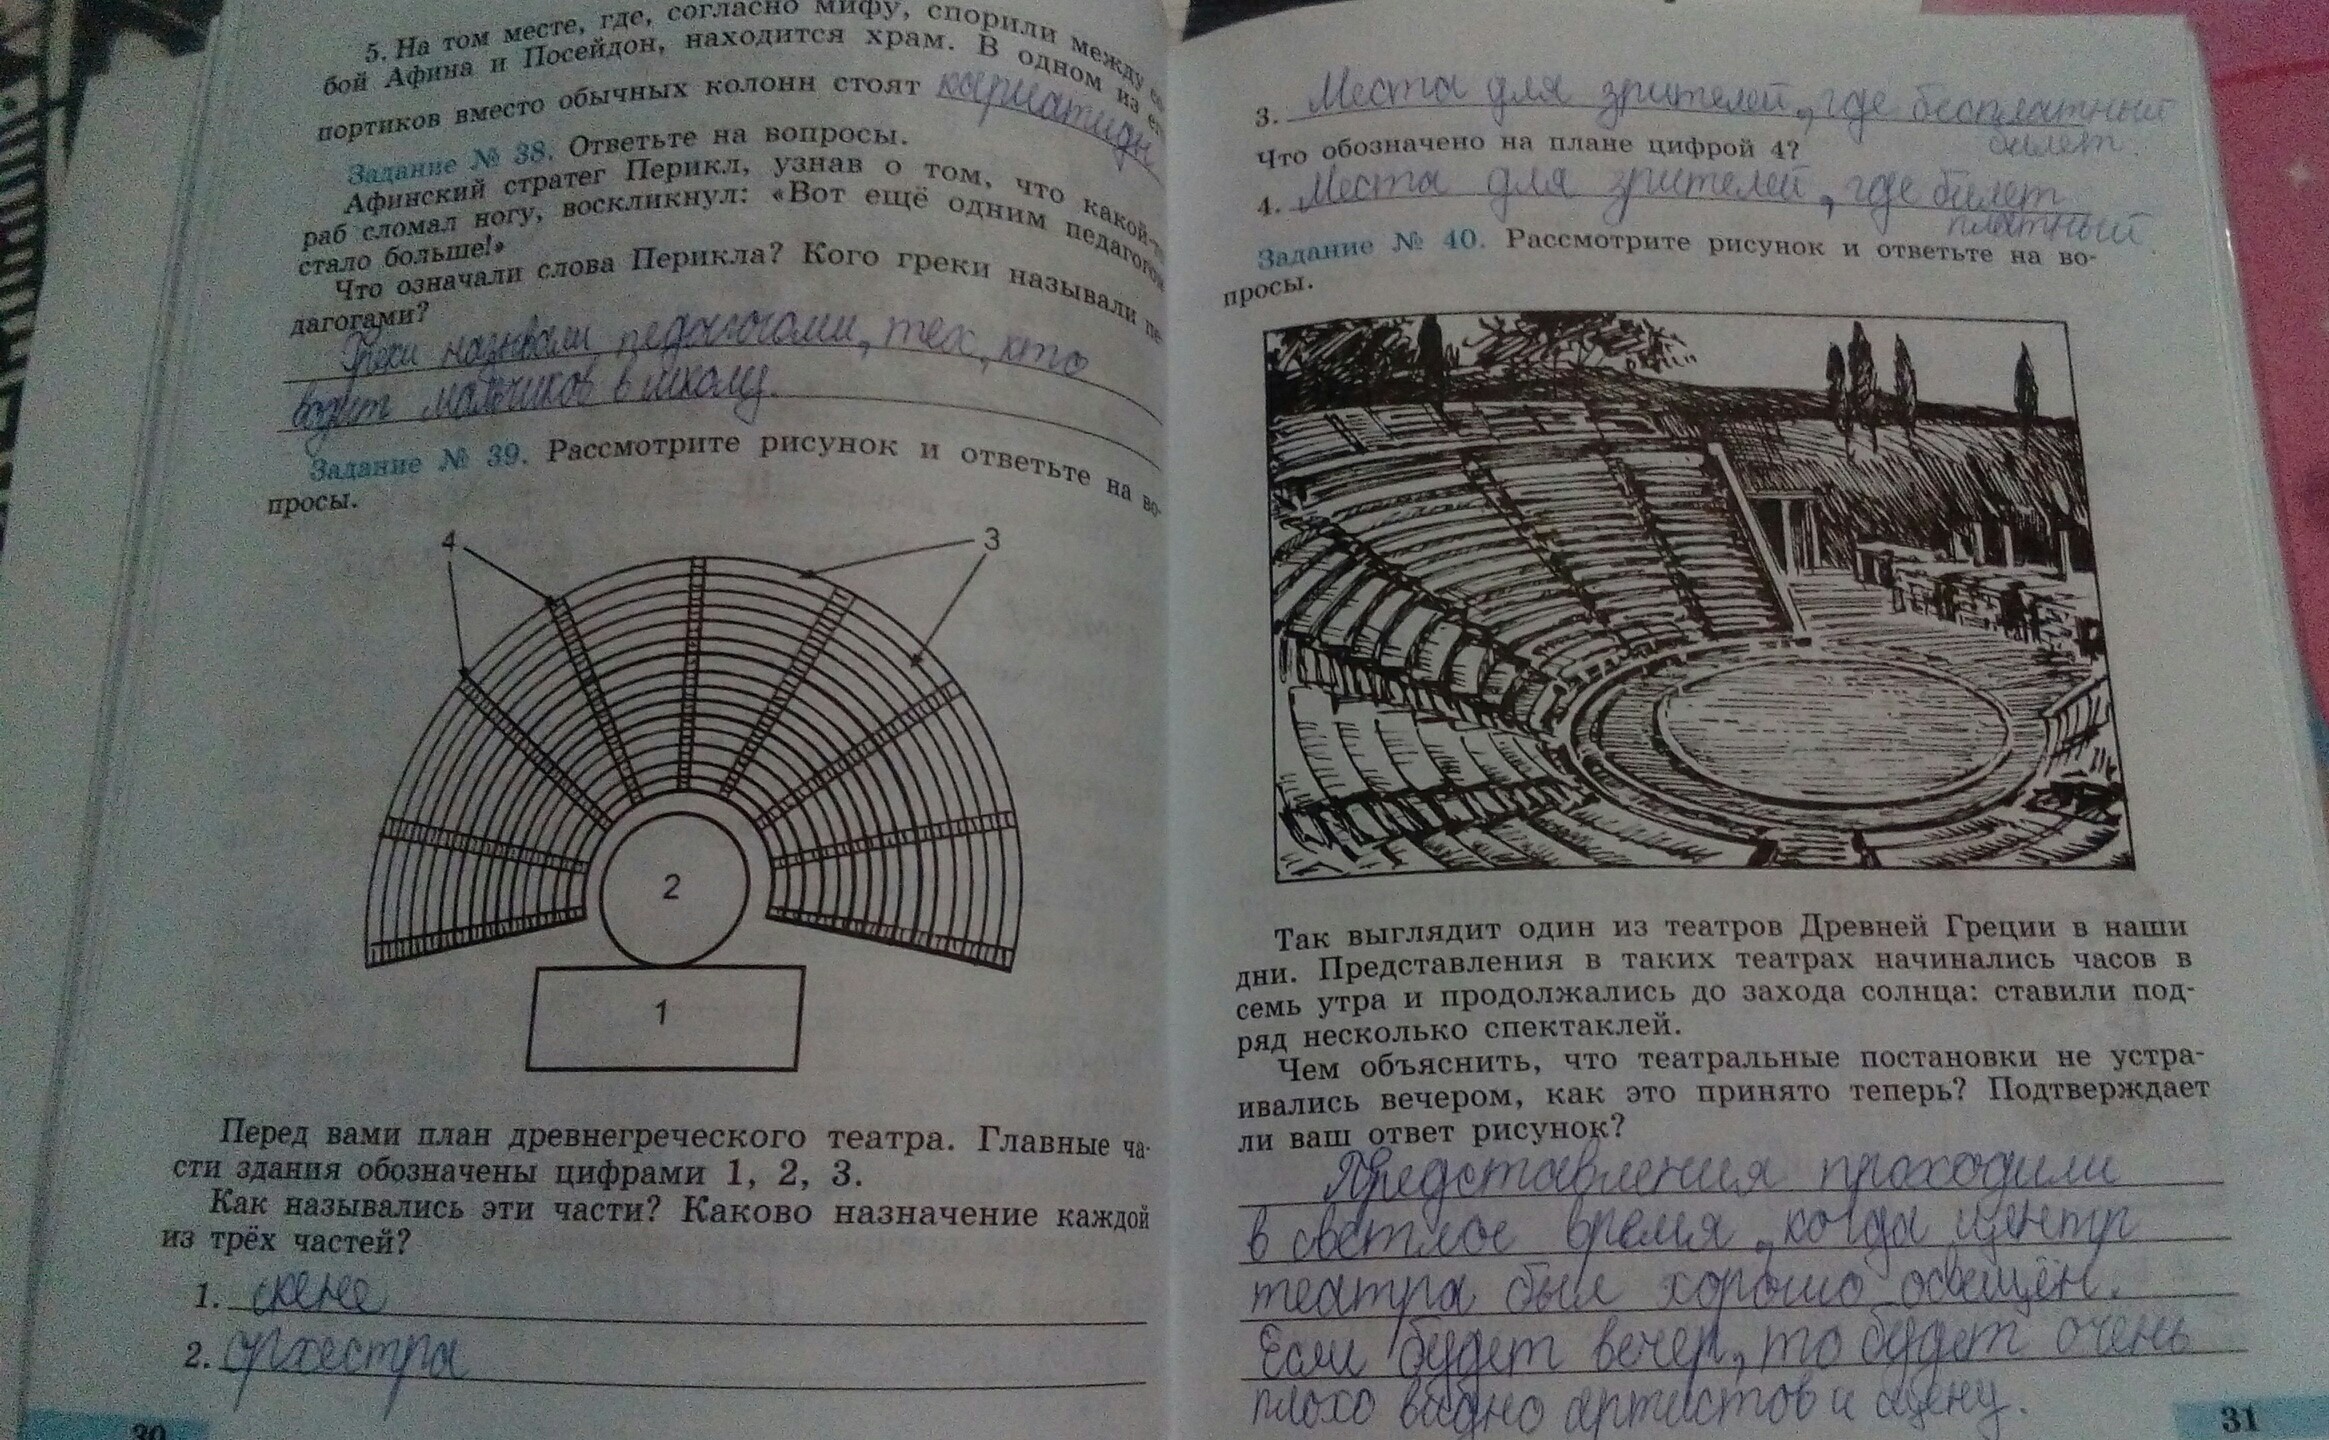 5. На том месте, где, согласно мифу, спорили между со-
бой Афина и Посейдон, находится храм. В одном из его
портиков вместо обычных колонн стоят кариатиды
Задание № 38. Ответьте на вопросы.
Афинский стратег Перикл, узнав о том, что какой-то
раб сломал ногу, воскликнул: «Вот ещё одним педагогом
стало больше!»
Что означали слова Перикла? Кого греки называли пе-
дагогами?
Греки называли педагогами, тех, кто
водит мальчиков в школу.
Задание № 39. Рассмотрите рисунок и ответьте на во-
просы.
4 3
2
1
Перед вами план древнегреческого театра. Главные ча-
сти здания обозначены цифрами 1, 2, 3.
Как назывались эти части? Каково назначение каждой
из трёх частей?
1. скене
2. орхестра
30
3. Места для зрителей, где бесплатный
билет.
Что обозначено на плане цифрой 4?
4. Места для зрителей, где билет
платный.
Задание № 40. Рассмотрите рисунок и ответьте на во-
просы.
Так выглядит один из театров Древней Греции в наши
дни. Представления в таких театрах начинались часов в
семь утра и продолжались до захода солнца: ставили под-
ряд несколько спектаклей.
Чем объяснить, что театральные постановки не устра-
ивались вечером, как это принято теперь? Подтверждает
ли ваш ответ рисунок?
Представления проходили
в светлое время, когда центр
театра был хорошо освещён.
Если будет вечер, то будет очень
плохо видно артистов и сцену.
31